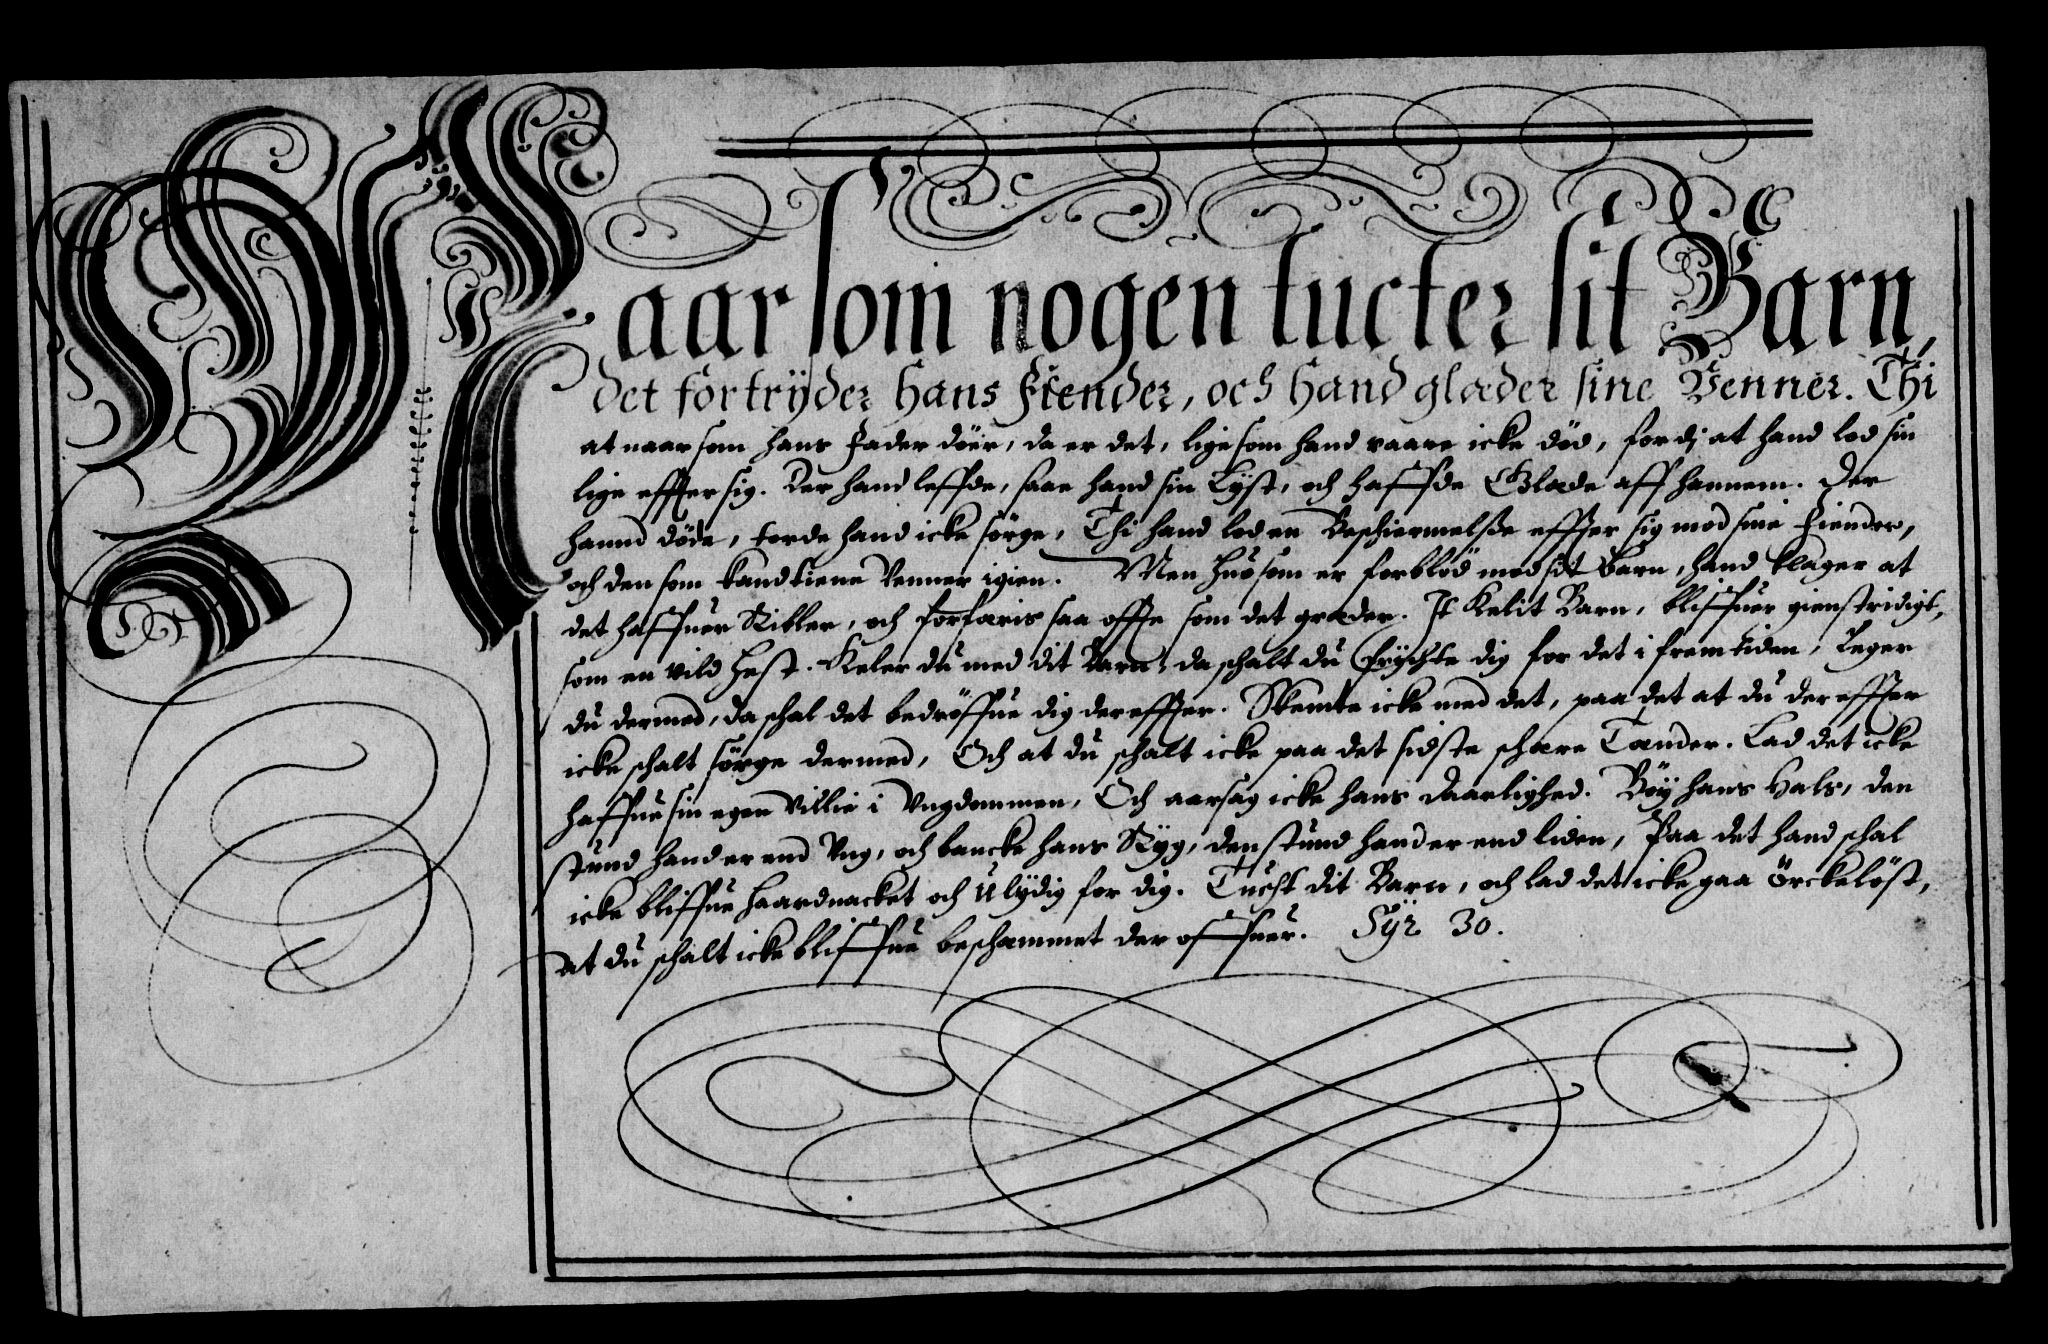 Naar som nogen tucter sit Barn,
det fortryder hans Fiender, och hand glæder sine Venner. Thi
at naar som hans Fader döer, da er det, lige som hand vaare icke död, fordj at hand lod sin
lige effter sig. Der hand leffde, saae hand sin Lyst, och haffde Glæde aff hannem. Der
hannd döde, torde hand icke sörge, Thi hand lod en Beschiermelsse effter sig mod sine Fiender,
och den som kand tiene Venner igien. Men huo som er forblöd med sit Barn, hand klager at
det haffuer Stibler, och forfæris saa offte som det græder. It Kelit Barn, bliffuer gienstridigt,
som en vild Hest. Keler du med dit Barn, da schalt du frychte dig for det i fremtiden, Leger
du dermed, da schal det bedröffue dig dereffter. Skemte icke med det, paa det at du dereffter
icke schalt sörge dermed, Och at du schalt icke paa det sidste schære Tænder. Lad det icke
haffue sin egen Villie i Ungdommen, Och aarsag icke hans Daarlighed. Böy hans Hals, den
stund hand er end Ung, och bancke hans Ryg, den stund hand er end liden, Paa det hand schal
icke bliffue Haardnacket och Ulydig for dig. Tucht dit Barn, och lad det icke gaa Örckelöst,
at du schalt icke bliffue beschæmmet der offuer. Syr 30.